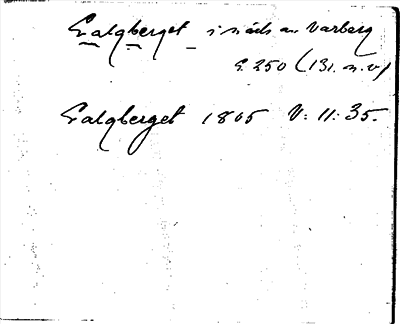 Galgberget i närh. av Varberg
E. 250 (131. n.v)
Galgberget 1805 V: 11: 35.